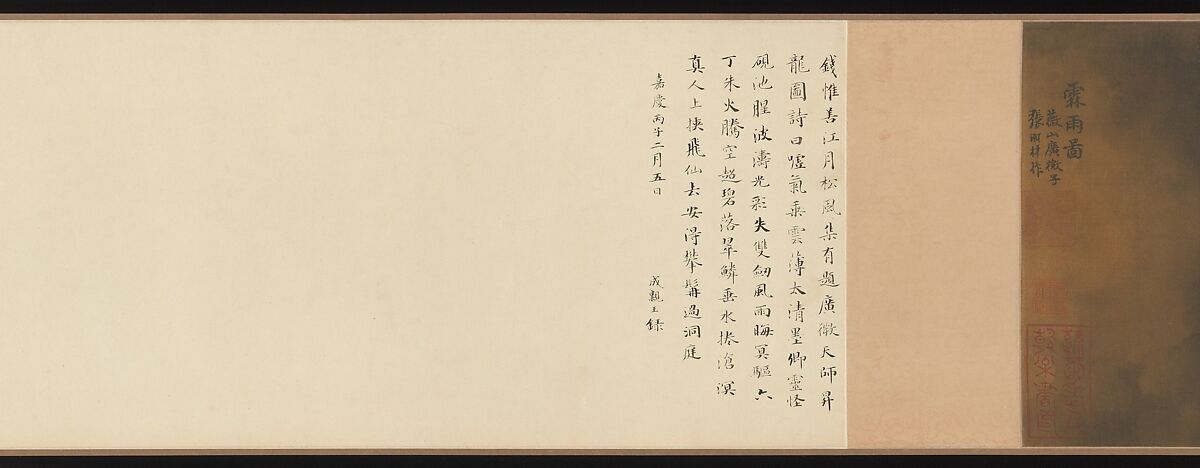 霖雨啚
薇山廣微子
張材作
錢惟善江月松風集有題廣微天師昇
龍圖詩曰噓氣乘雲薄太清墨卿靈怪
硯池腥波濤光彩失雙劒風雨晦冥驅六
丁朱火騰空超碧落翠鱗垂水捲滄溟
真人上挾飛仙去安得攀髯過洞庭
嘉慶丙子二月五日
成親王錄